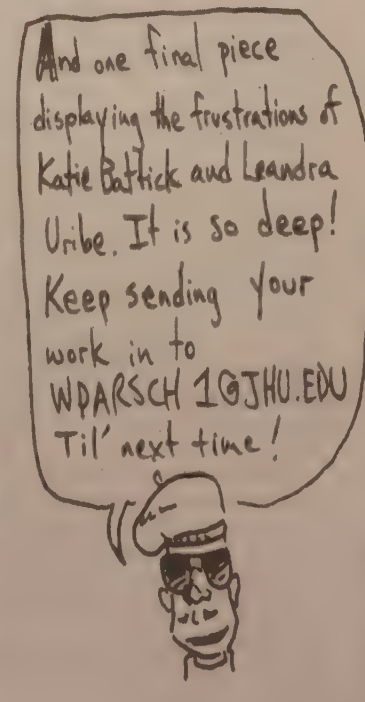 And one final piece
displaying the frustrations of
Katie Battick and Leandra
Uribe. It is so deep!
Keep sending your
work in to
WPARSCH 1@JHU.EDU
Til' next time!